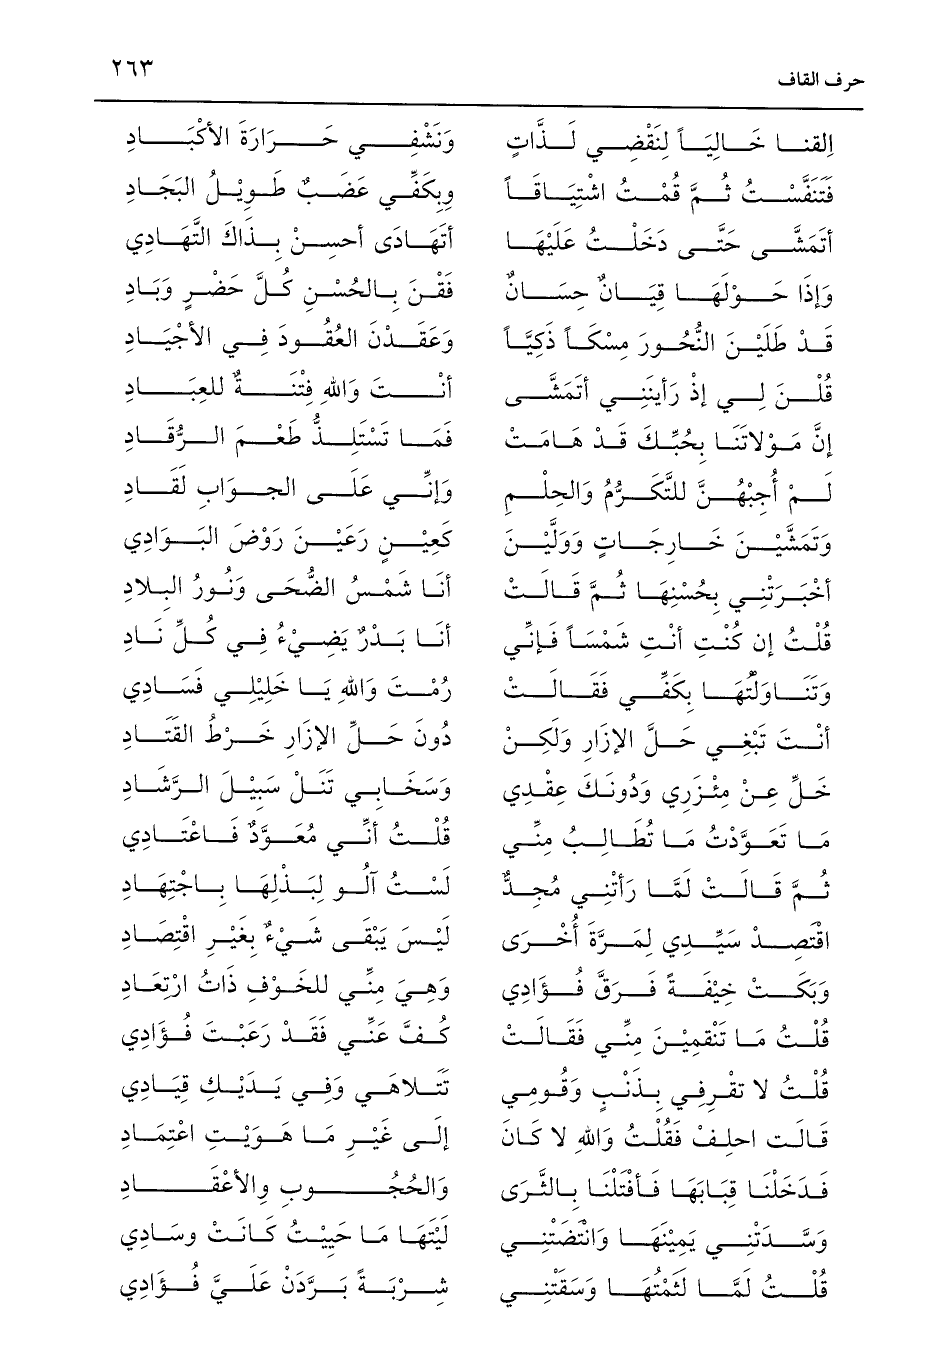 حرف القاف ٢٦٣
إلقنا خَالِيَاً لِنَقْضِي لَذَّاتٍ وَنَشْفِي حَرَارَةَ الأَكْبَادِ
فَتَنَفَّسْتُ ثُمَّ قُمْتُ اشْتِيَاقاً وبِكَفِّي عَضْبٌ طَوِيْلُ النِّجَادِ
أَتَمَشَّى حَتَّى دَخَلْتُ عَلَيْهَا أَتَهَادَى أَحْسِنْ بِذَاكَ التَّهَادِي
وَإِذَا حَوْلَهَا قِيَانٌ حِسَانٌ فُقْنَ بِالحُسْنِ كُلَّ حَضْرٍ وَبَادِ
قَدْ طَلَيْنَ النُّحُورَ مِسْكَاً ذَكِيَّاً وَعَقَدْنَ العُقُودَ فِي الأَجْيَادِ
قُلْنَ لِي إِذْ رَأَيْنَنِي أَتَمَشَّى أَنْتَ وَاللهِ فِتْنَةٌ لِلعِبَادِ
إِنَّ مَوْلاَتَنَا بِحُبِّكَ قَدْ هَامَتْ فَمَا تَسْتَلِذُّ طَعْمَ الرُّقَادِ
لَمْ أُجِبْهُنَّ لِلتَّكَرُّمِ وَالحِلْمِ وَإِنِّي عَلَى الجَوَابِ لَقَادِ
وَتَمَشَّيْنَ خَارِجَاتٍ وَوَلَّيْنَ كَعِيْنٍ رَعَيْنَ رَوْضَ البَوَادِي
أَخْبَرَتْنِي بِحُسْنِهَا ثُمَّ قَالَتْ أَنَا شَمْسُ الضُّحَى وَنُورُ البِلاَدِ
قُلْتُ إِن كُنْتِ أَنْتِ شَمْسَاً فَإِنِّي أَنَا بَدْرٌ يُضِيْءُ فِي كُلِّ نَادِ
وَتَنَاوَلْتُهَا بِكَفِّي فَقَالَتْ رُمْتَ وَاللهِ يَا خَلِيْلِي فَسَادِي
أَنْتَ تَبْغِي حَلَّ الإِزَارِ وَلَكِنْ دُونَ حَلِّ الإِزَارِ خَرْطُ القَتَادِ
خَلِّ عِن مِئْزَرِي وَدُونَكَ عِقْدِي وَسَخَابِي تَنَلْ سَبِيْلَ الرَّشَادِ
مَا تَعَوَّدْتُ مَا تُطَالِبُ مِنِّي قُلْتُ أَنِّي مُعَوَّدٌ فَاعْتَادِي
ثُمَّ قَالَتْ لَمَّا رَأَتْنِي مُجِدَّاً لَسْتَ آلُو لِبَذْلِهَا بِاجْتِهَادِ
اقْتَصِدْ سَيِّدِي لِمَرَّةٍ أُخْرَى لَيْسَ يَبْقَى شَيْءٌ بِغَيْرِ اقْتِصَادِ
وَبَكَتْ خِيْفَةً فَرَقَّ فُؤَادِي وَهِيَ مِنِّي لِلخَوْفِ ذَاتُ ارْتِعَادِ
قُلْتُ مَا تَنْقِمِيْنَ مِنِّي فَقَالَتْ كُفَّ عَنِّي فَقَدْ رَعَبْتَ فُؤَادِي
قُلْتُ لاَ تَفْرَقِي بِذَنْبٍ وَقُومِي نَتَلاَهَى وَفِي يَدَيْكِ قِيَادِي
قَالَتِ احْلِفْ فَقُلْتُ وَاللهِ لاَ كَانَ إِلَى غَيْرِ مَا هَوِيْتِ اعْتِمَادِ
فَدَخَلْنَا قِبَابَهَا فَأَفَتْلنَا بِالثَّرَى وَالحُجُوبِ وَالأَعْقَادِ
وَسَّدَتْنِي يَمِيْنَهَا وَانْتَضَتْنِي لَيْتَهَا مَا حَيِيْتُ كَانَتْ وِسَادِي
قُلْتُ لَمَّا لَثَمْتُهَا وَسَقَتْنِي شَرْبَةً بَرَّدَنْ عَلَيَّ فُؤَادِي